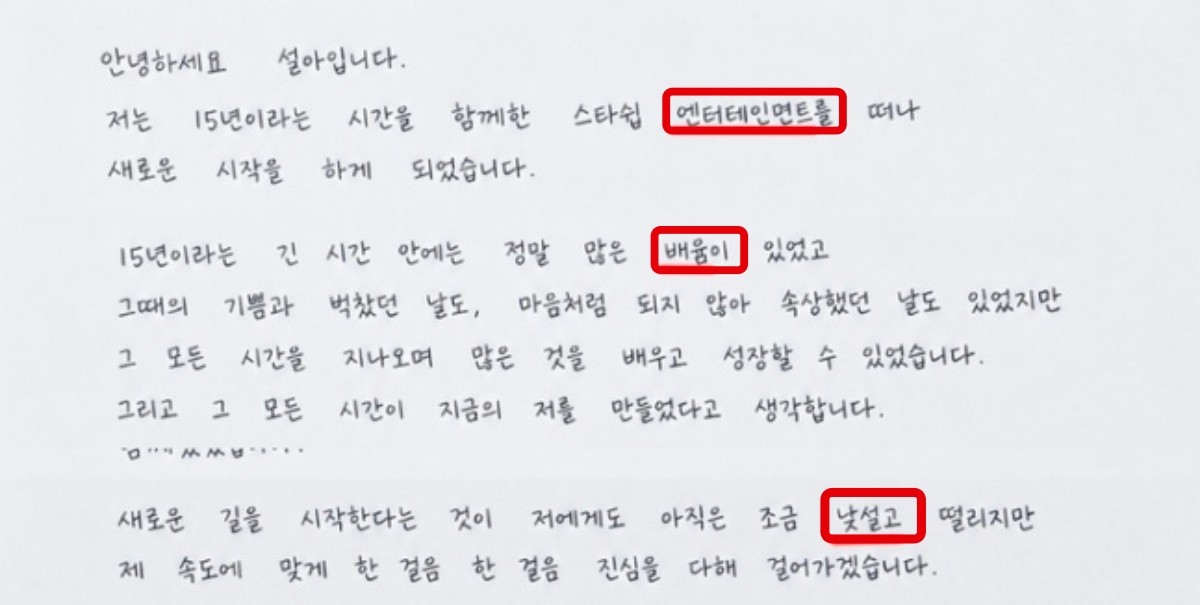 안녕하세요 설아입니다.
저는 15년이라는 시간을 함께한 스타쉽 엔터테인면트를 떠나
새로운 시작을 하게 되었습니다.
15년이라는 긴 시간 안에는 정말 많은 배윰이 있었고
그때의 기쁨과 벅찼던 날도, 마음처럼 되지 않아 속상했던 날도 있었지만
그 모든 시간을 지나오며 많은 것을 배우고 성장할 수 있었습니다.
그리고 그 모든 시간이 지금의 저를 만들었다고 생각합니다.
새로운 길을 시작한다는 것이 저에게도 아직은 조금 낮설고 떨리지만
제 속도에 맞게 한 걸음 한 걸음 진심을 다해 걸어가겠습니다.